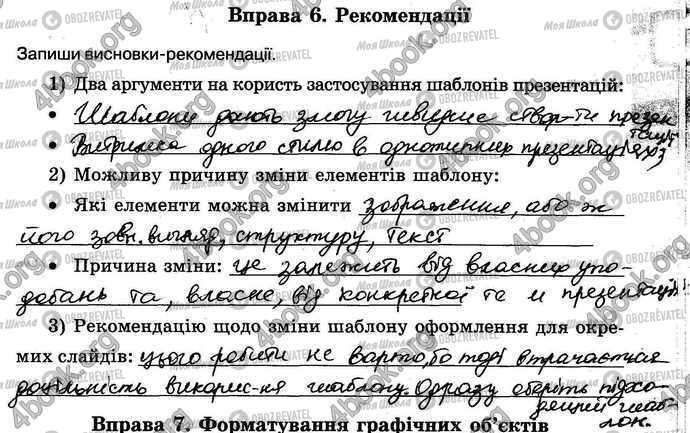 Вправа 6. Рекомендації
Запиши висновки-рекомендації.
1) Два аргументи на користь застосування шаблонів презентацій:
• Шаблони дають змогу швидше створ-ти презен
тацію
• Витримка одного стилю в однотипних презентаціях
2) Можливу причину зміни елементів шаблону:
• Які елементи можна змінити зображення, або ж
його зовн. вигляд, структуру, текст
• Причина зміни: це залежить від власних упо-
добань та, власне, від конкретної те м презентації
3) Рекомендацію щодо зміни шаблону оформлення для окре-
мих слайдів: цього робити не варто, бо тоді втрачається
доцільність викорис-ня шаблону. Одразу оберіть підхо-
дящий шаб-
лон.
Вправа 7. Форматування графічних об'єктів